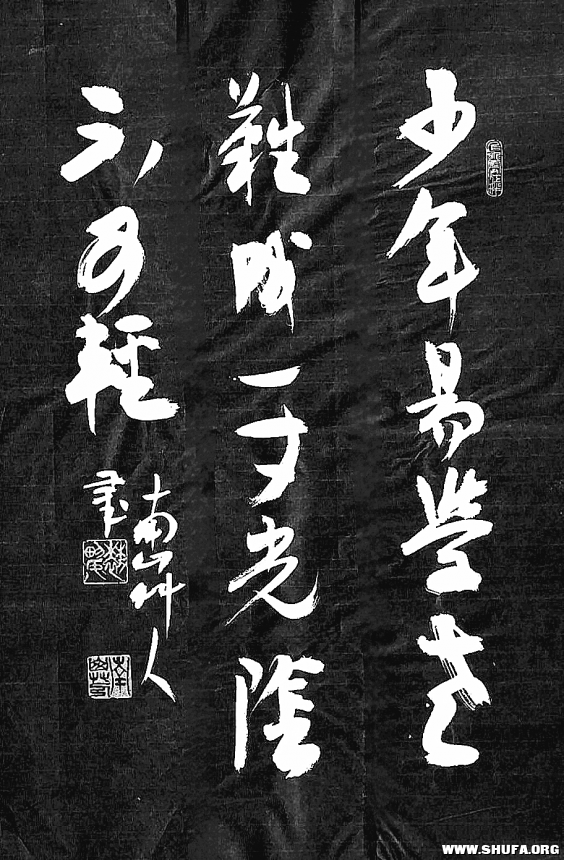 少年易學老
難成一寸光陰
不可輕
南山艸人
書
WWW.SHUFA.ORG